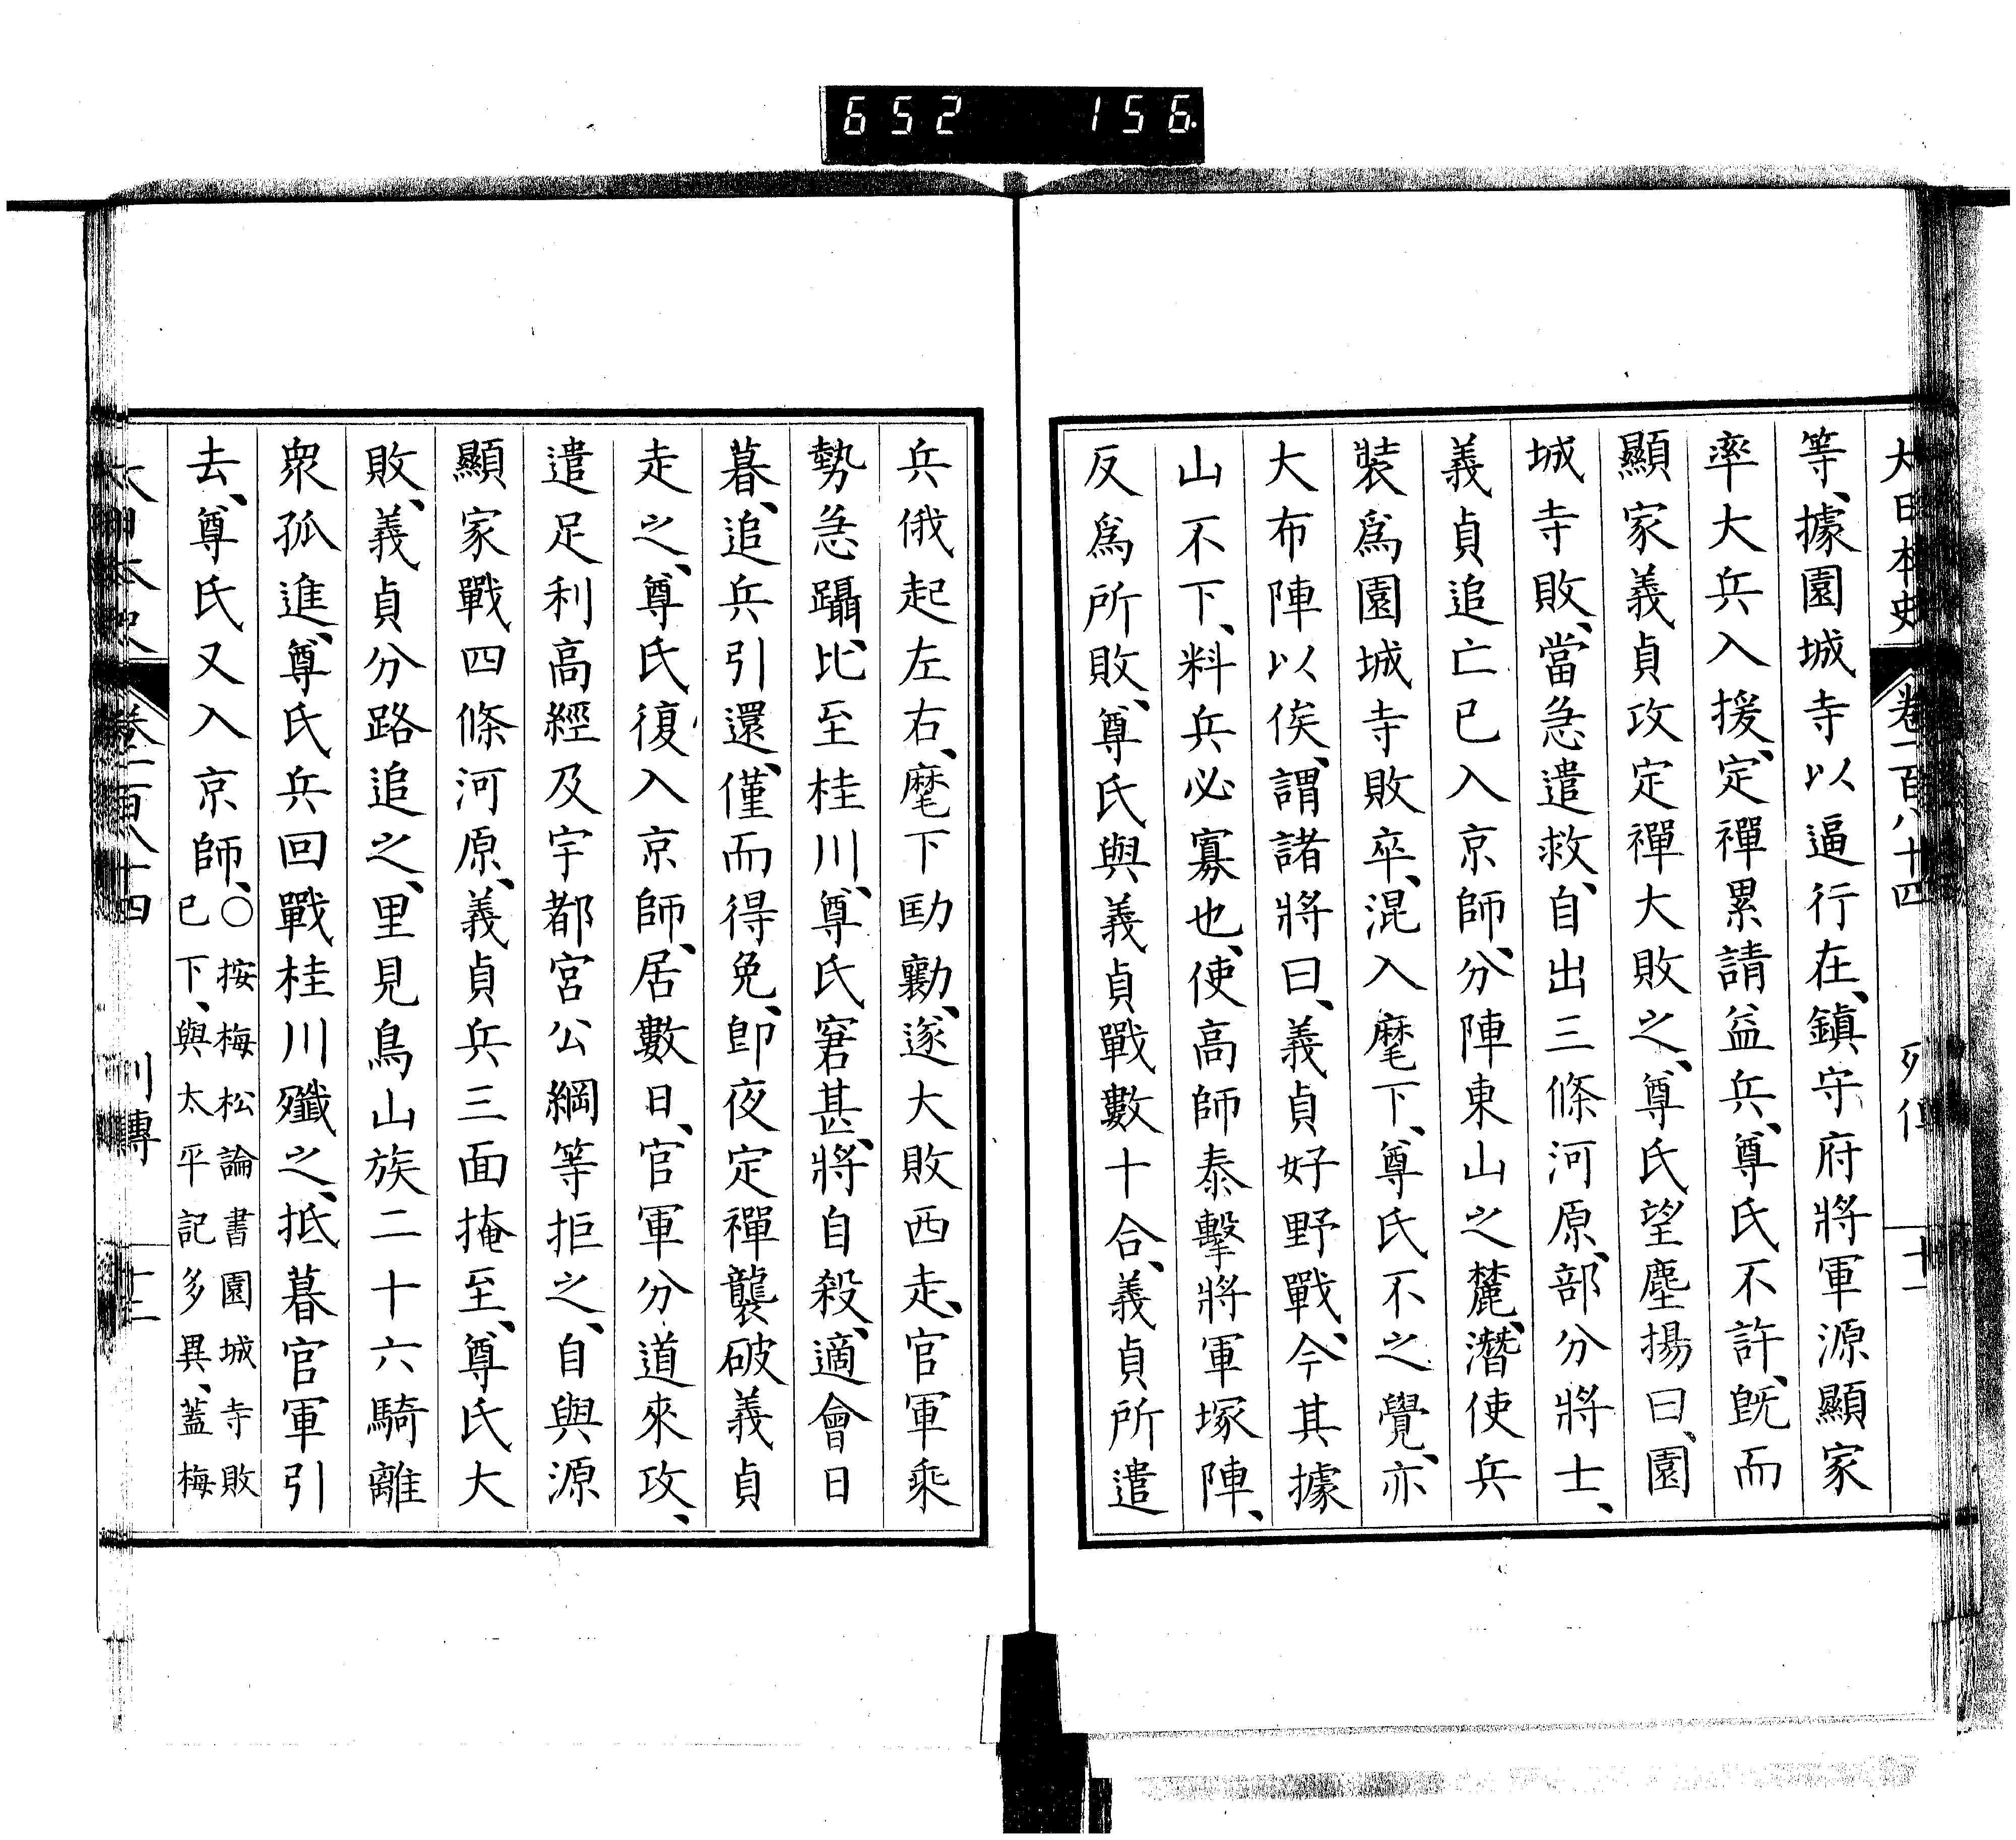 652 156
大日本史 卷一百八十四 列傳 十一
等、據園城寺以逼行在、鎮守府將軍源顯家
率大兵入援、定禪累請益兵、尊氏不許、既而
顯家義貞攻定禪大敗之、尊氏望塵揚曰、園
城寺敗、當急遣救、自出三條河原、部分將士、
義貞追亡已入京師、分陣東山之麓、潛使兵
裝爲園城寺敗卒、混入麾下、尊氏不之覺、亦
大布陣以俟、謂諸將曰、義貞好野戰、今其據
山不下、料兵必寡也、使高師泰擊將軍塚陣、
反爲所敗、尊氏與義貞戰數十合、義貞所遣
兵俄起左右、麾下劻勷、遂大敗西走、官軍乘
勢急躡、比至桂川、尊氏窘甚、將自殺、適會日
暮、追兵引還、僅而得免、卽夜定禪襲破義貞
走之、尊氏復入京師、居數日、官軍分道來攻、
遣足利高經及宇都宮公綱等拒之、自與源
顯家戰四條河原、義貞兵三面掩至、尊氏大
敗、義貞分路追之、里見鳥山族二十六騎離
衆孤進、尊氏兵回戰桂川殲之、抵暮官軍引
去、尊氏又入京師、○按梅松論書園城寺敗
已下、與太平記多異、蓋梅
大日本史 卷一百八十四 列傳 十二